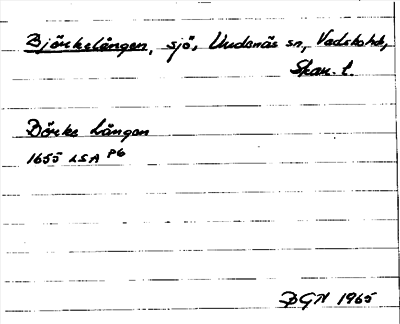 Björkelången, sjö, Undenäs sn, Vadsbo hd,
Skar. l.
Börke Lången
1655 LSA P6
DGN 1965